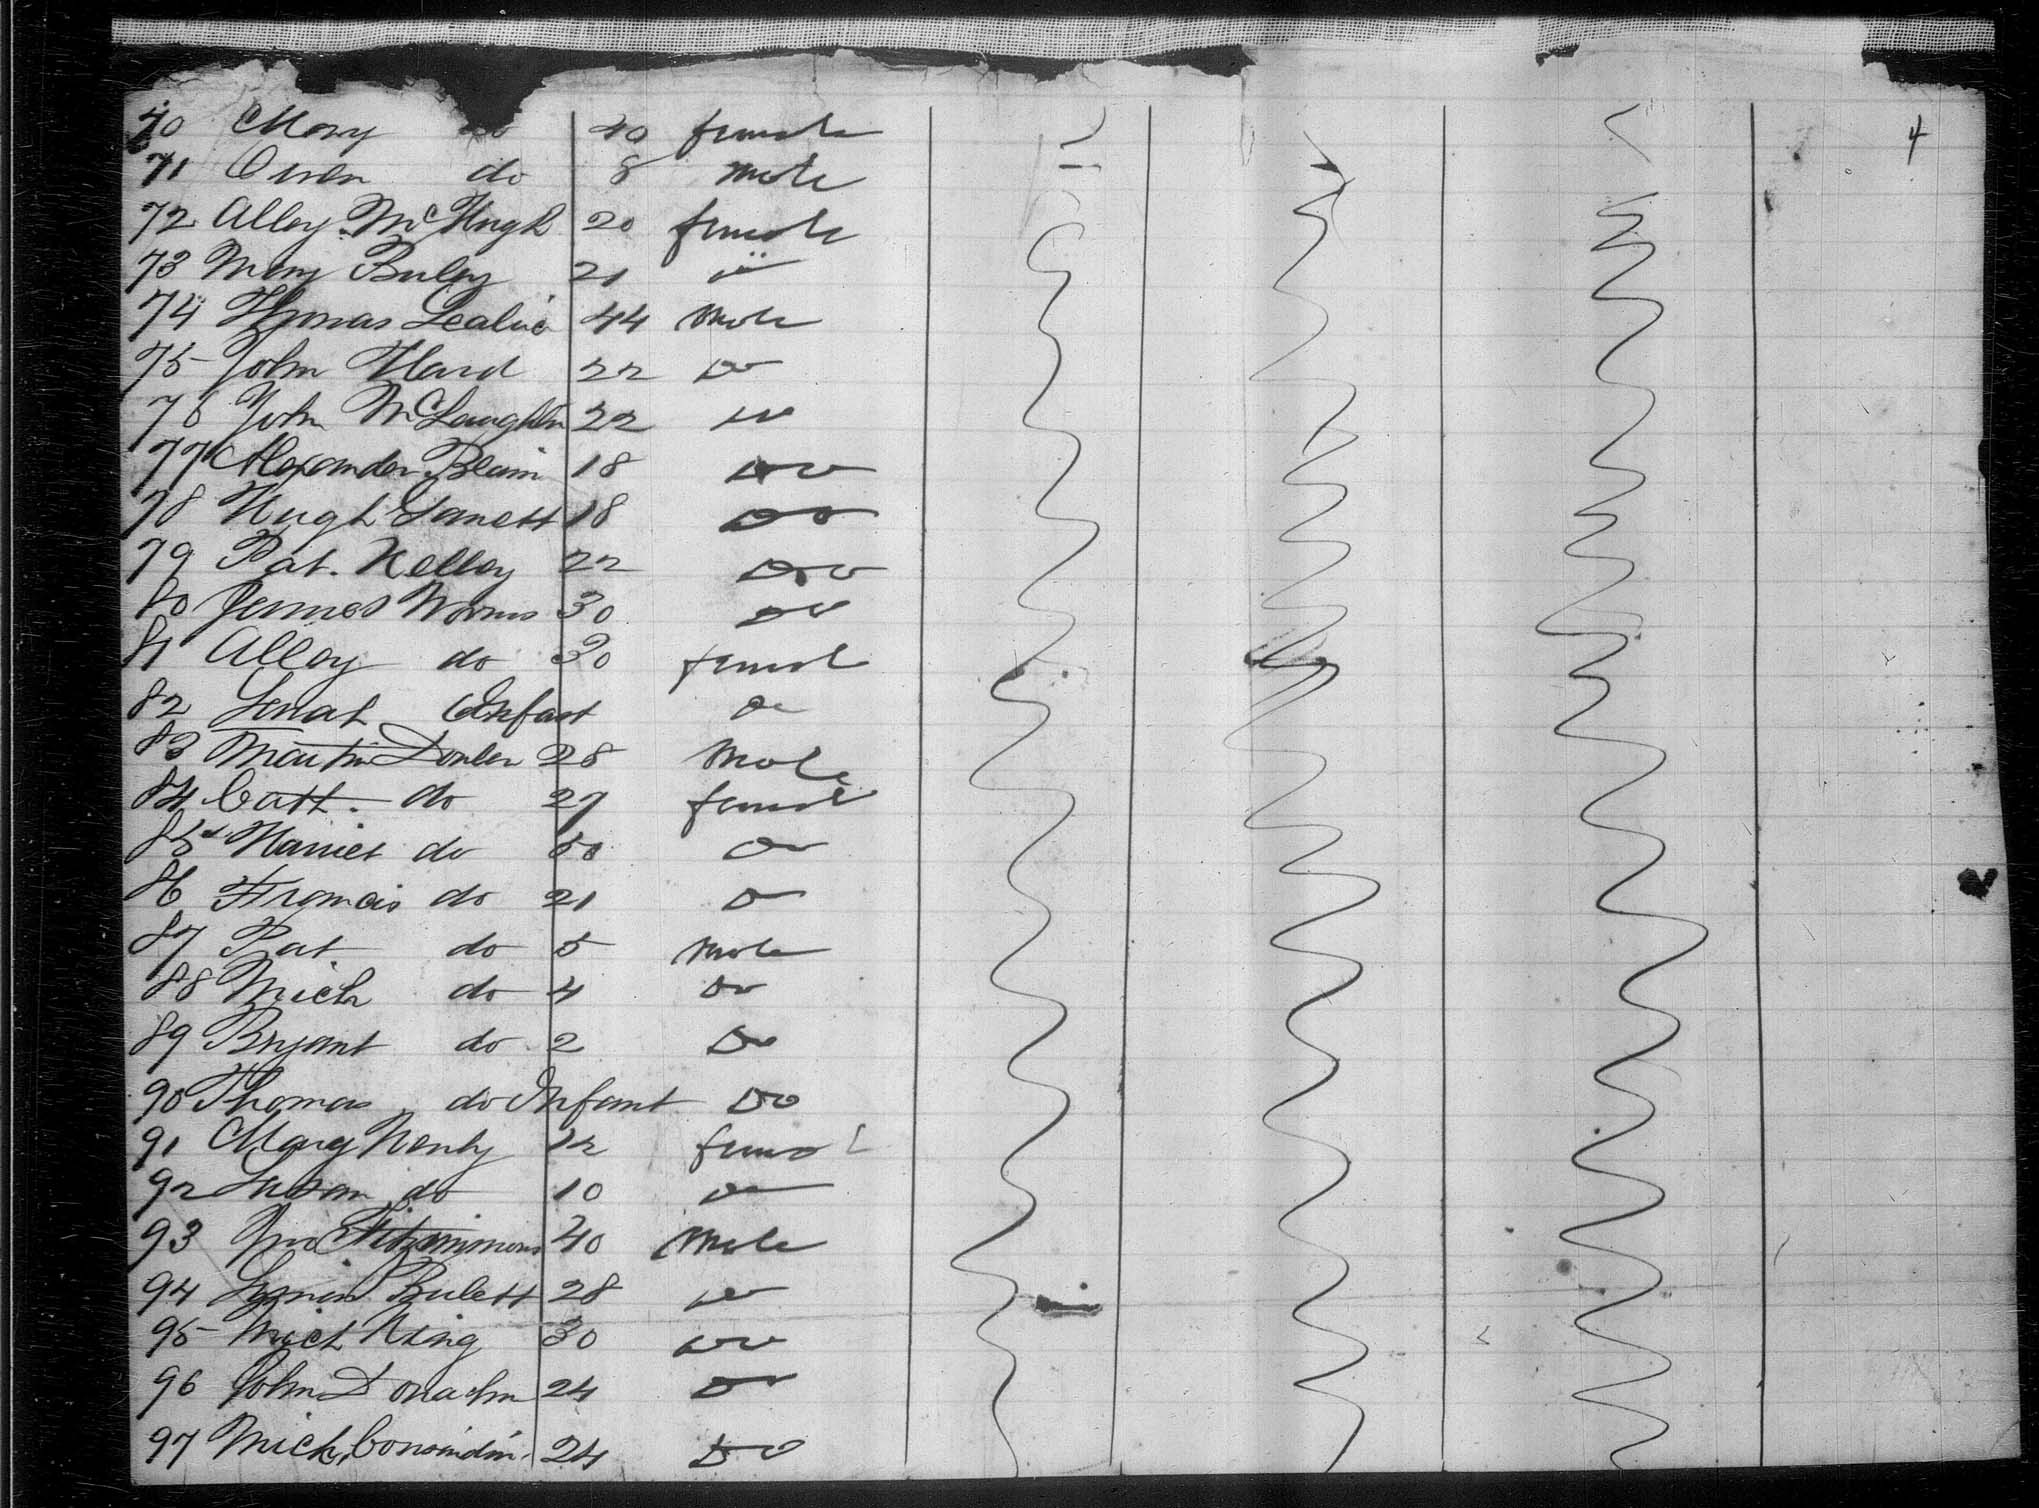 4
70 Mary do 40 female
71 Owen do 8 Male
72 Alley McHugh 20 female
73 Mary 21 do
74 Thomas 44 Male
75 John Ward 22 Do
76 John McLaughlin 22 Do
77 Alexander Beam 18 Do
78 Hugh 18 Do
79 Pat. Kelley 22 Do
80 James Norris 30 Do
81 Alley do 30 female
82 Infant Do
83 Martin Donlen 28 Male
84 Cath. do 27 female
85 Harriet do 50 Do
86 Francis do 21 Do
87 Pat. do 5 Male
88 Mich do 4 Do
89 Bryant do 2 Do
90 Thomas do Infant Do
91 Mary Henly 12 female
92 Susan do 10 Do
93 Jno Fitzimmons 40 Male
94 28 Do
95 Mich King 30 Do
96 John Donachn 24 Do
97 Mich. Consindin 24 Do